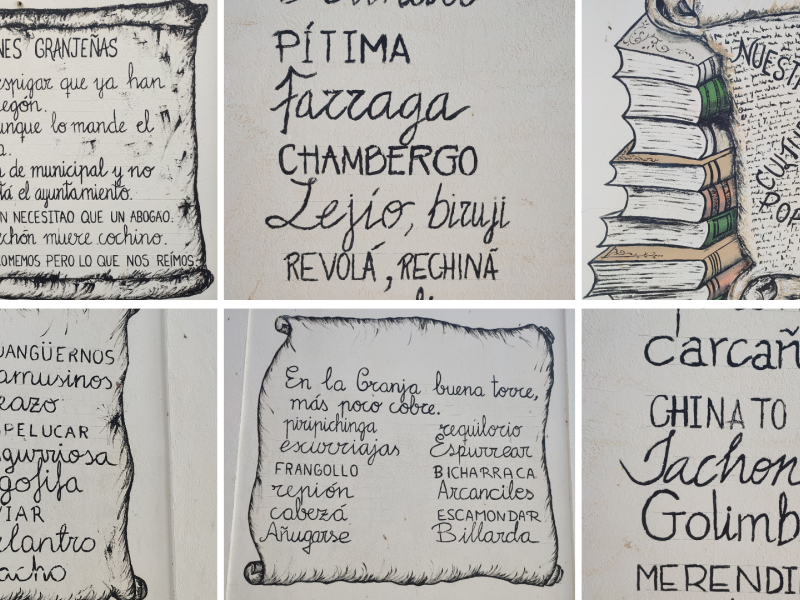 NES GRANJEÑAS
espigar que ya han
egón.
unque lo mande el
de municipal y no
tá el ayuntamiento.
N NECESITAO QUE UN ABOGAO.
echón muere cochino.
OMEMOS PERO LO QUE NOS REÍMOS.
PÍTIMA
Farraga
CHAMBERGO
Lejío, biruji
REVOLÁ, RECHINÁ
NUEST
CULTU
POP
UANGÜERNOS
amusinos
eazo
SPELUCAR
gurriosa
gofifa
VIAR
elantro
acho
En la Granja buena torre,
más poco cobre.
piripichinga requilorio
escurriajas Espurrear
FRANGOLLO BICHARRACA
repión Arcanciles
cabezá ESCAMONDAR
Añugarse Billarda
carcañ
CHINATO
Jachon
Golimb
MERENDI